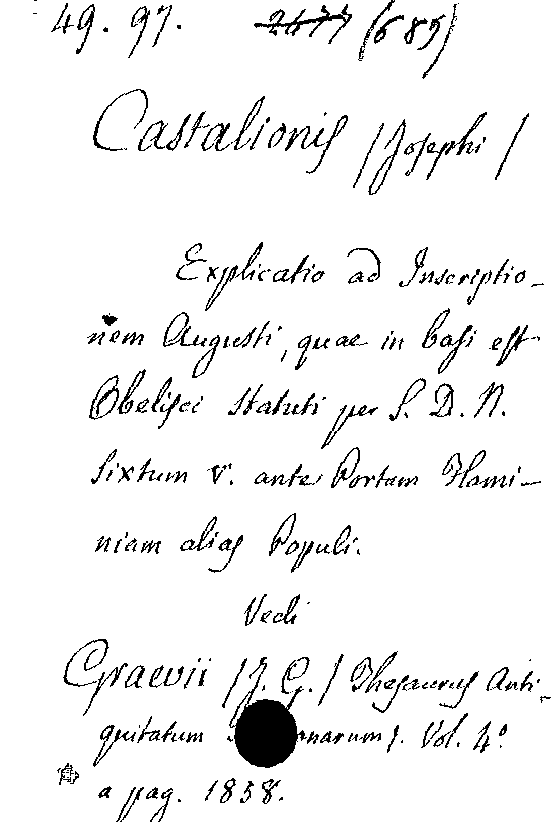 49. 97. 2477 (689)
Castalionis /Josephi/
Explicatio ad Inscriptio-
nem Augusti, quae in basi est
Obelisci statuti per S. D. N.
Sixtum V. ante Portam Flami-
niam alias Populi.
Vedi
Graevii /J. G./ Thesaurus Anti-
quitatum Vol. 4º
a pag. 1858.